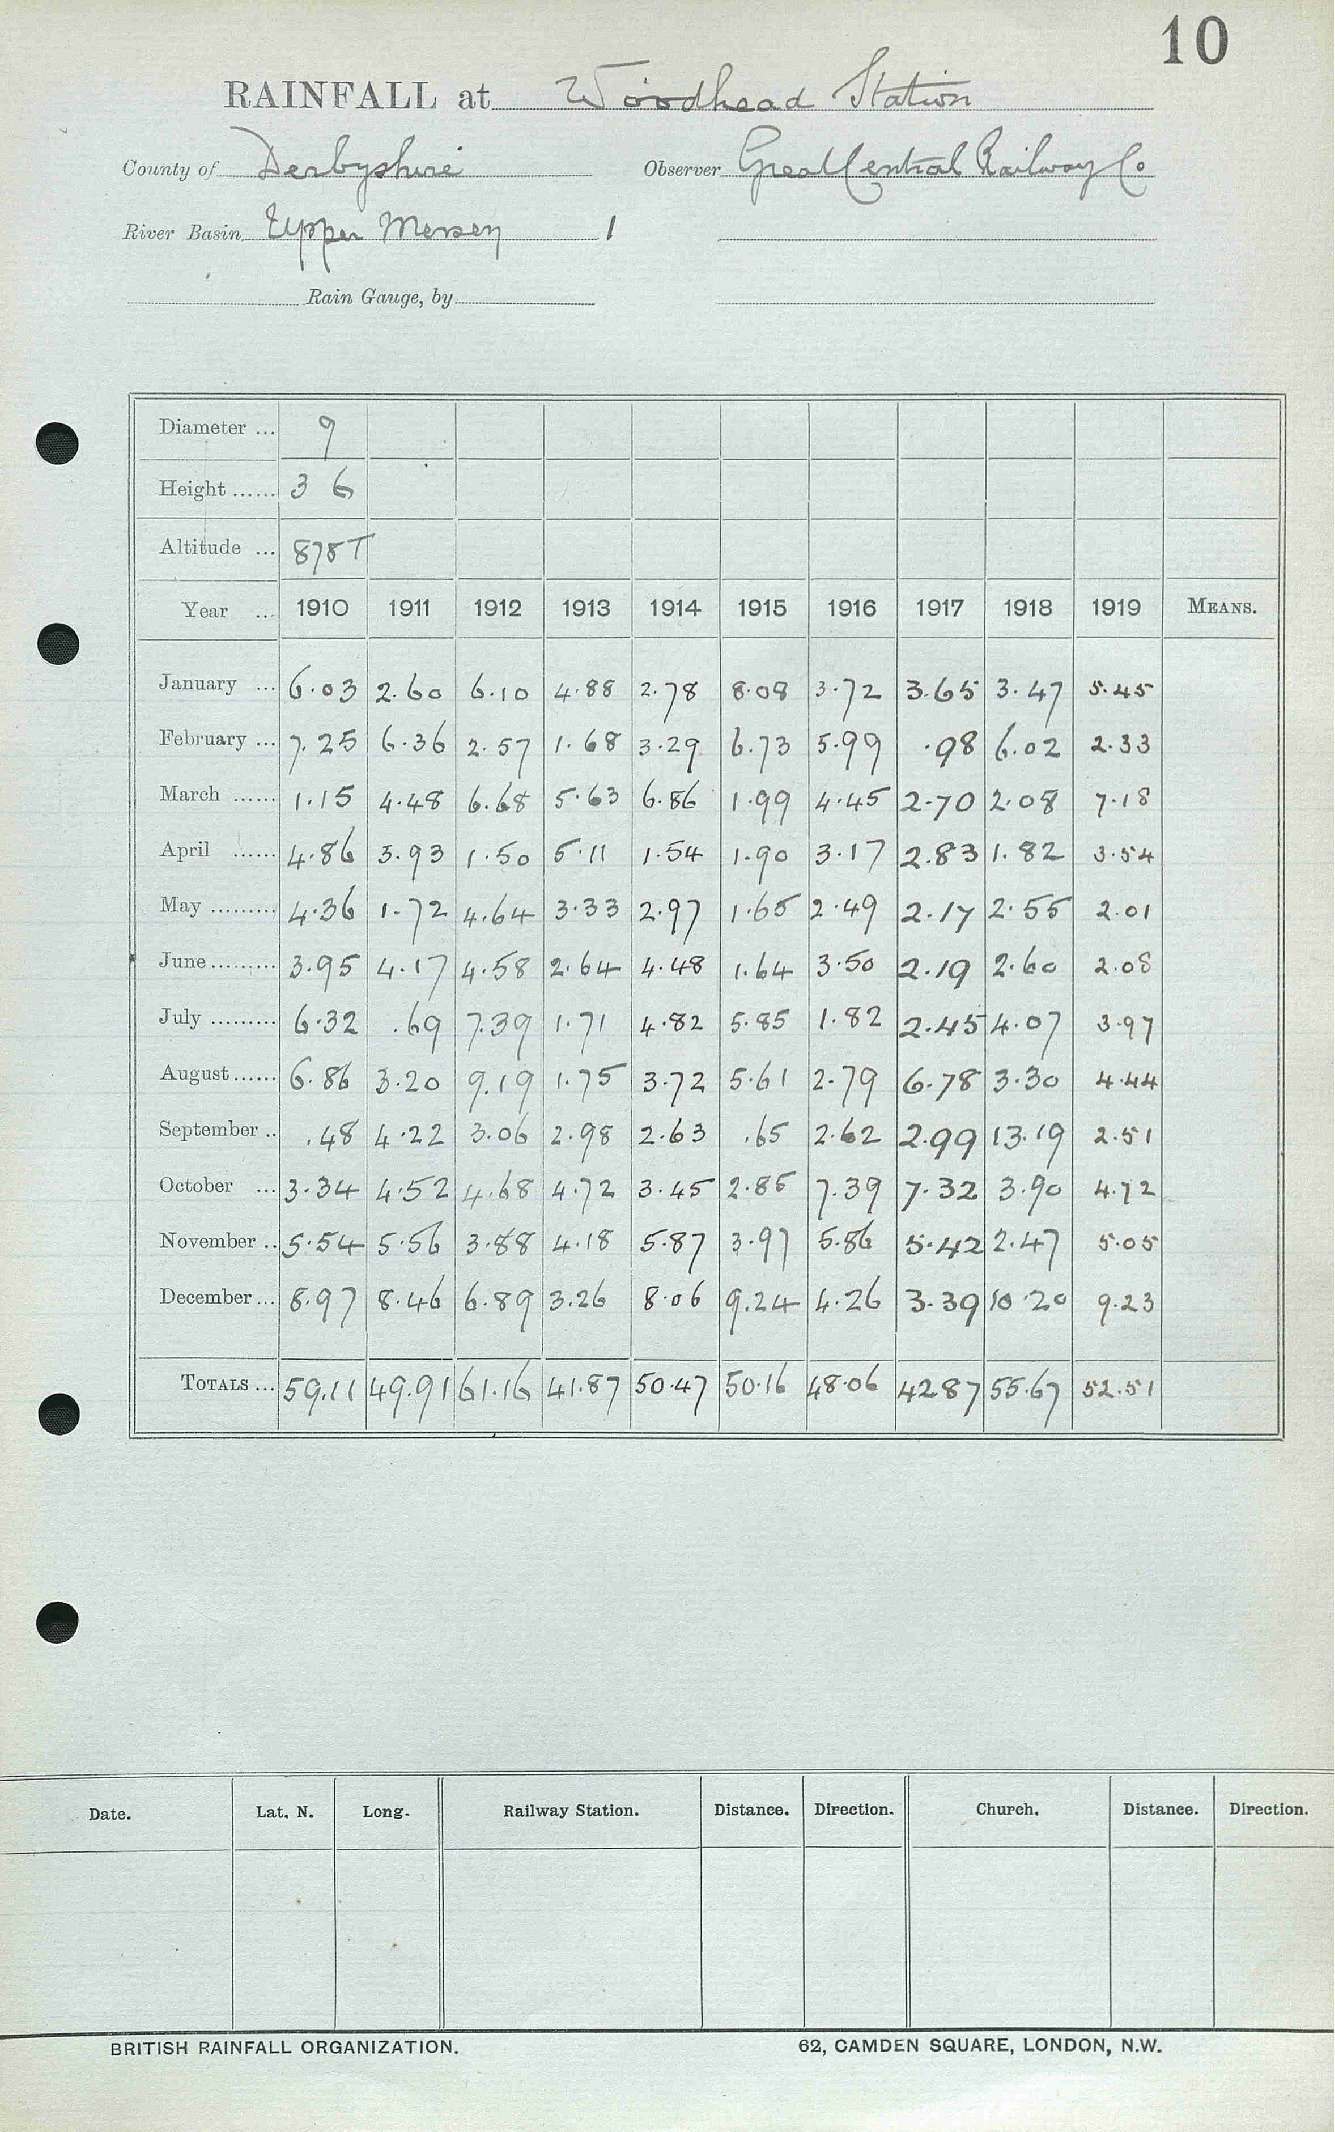 10
RAINFALL at Woodhead Station
County of Derbyshire Observer Great Central Railway Co
River Basin Upper Mersey 1
Rain Gauge, by
Diameter ... 9
Height ...... 3 6
Altitude ... 878 T
Year ... 1910 1911 1912 1913 1914 1915 1916 1917 1918 1919 MEANS.
January ... 6.03 2.60 6.10 4.88 2.78 8.08 3.72 3.65 3.47 5.45
February ... 7.25 6.36 2.57 1.68 3.29 6.73 5.99 .98 6.02 2.33
March ...... 1.15 4.48 6.68 5.63 6.86 1.99 4.45 2.70 2.08 7.18
April ...... 4.86 3.93 1.50 5.11 1.54 1.90 3.17 2.83 1.82 3.54
May ......... 4.36 1.72 4.64 3.33 2.97 1.65 2.49 2.17 2.55 2.01
June ......... 3.95 4.17 4.58 2.64 4.48 1.64 3.50 2.19 2.60 2.08
July ......... 6.32 .69 7.39 1.71 4.82 5.85 1.82 2.45 4.07 3.97
August ...... 6.86 3.20 9.19 1.75 3.72 5.61 2.79 6.78 3.30 4.44
September .. .48 4.22 3.06 2.98 2.63 .65 2.62 2.99 13.19 2.51
October ... 3.34 4.52 4.68 4.72 3.45 2.85 7.39 7.32 3.90 4.72
November .. 5.54 5.56 3.88 4.18 5.87 3.97 5.86 5.42 2.47 5.05
December ... 8.97 8.46 6.89 3.26 8.06 9.24 4.26 3.39 10.20 9.23
TOTALS ... 59.11 49.91 61.16 41.87 50.47 50.16 48.06 42.87 55.67 52.51
Date. Lat. N. Long. Railway Station. Distance. Direction. Church. Distance. Direction.
BRITISH RAINFALL ORGANIZATION. 62, CAMDEN SQUARE, LONDON, N.W.